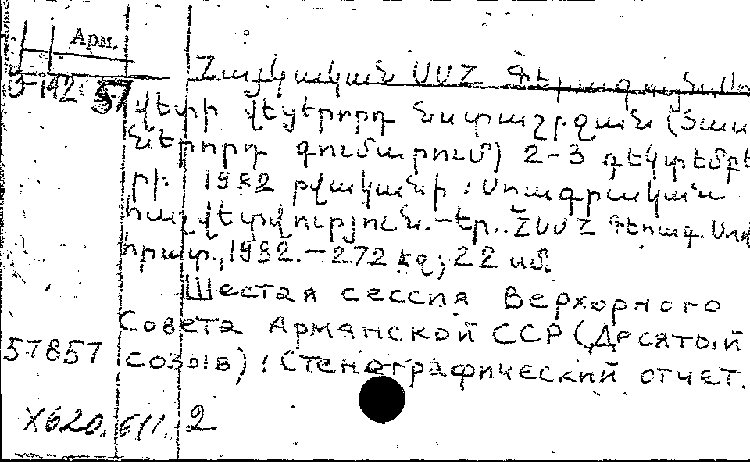 Арм.
Հայկական ՍՍՀ Գերագույն
Յ-142 57
վետի վեցերորդ նստաշրջան (Տաս
ներորդ գումարում) 2-3 դեկտեմբե
րի 1982 թվականի : Սղագրական
հաշվետվություն.-Եր.: ՀՍՍՀ Գերագ. Սով
հրատ., 1982.-272 էջ; 22 սմ.
Шестая сессия Верховного
Совета Армянской ССР (Десятый
57857 созыв) : Стенографический отчет.
X620.611.2